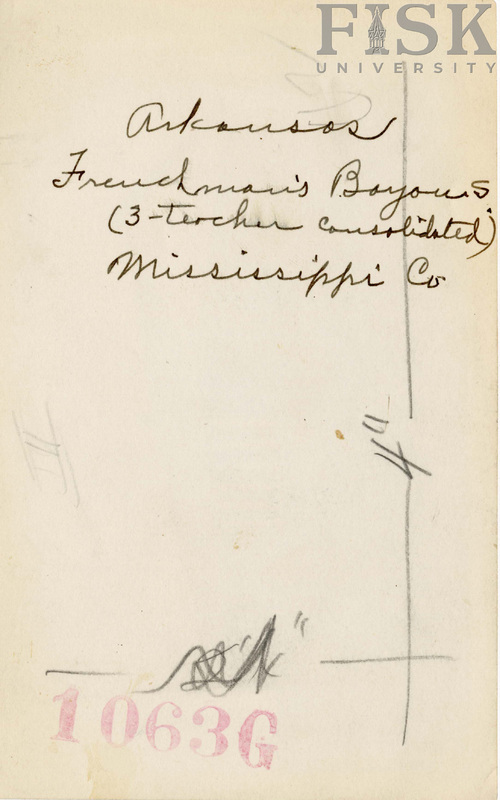 FISK
UNIVERSITY
Arkansas
Frenchman's Bayou S
(3-teacher consolidated)
Mississippi Co
4"
1063G